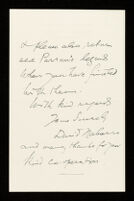 & please also return
When you have finished
with them.
With kind regards
Yours Sincerely
David
and many thanks for your
kind co-operation